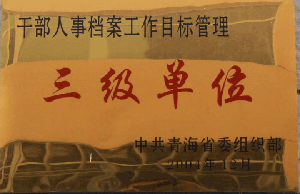 干部人事档案工作目标管理
三级单位
中共青海省委组织部
2004年12月